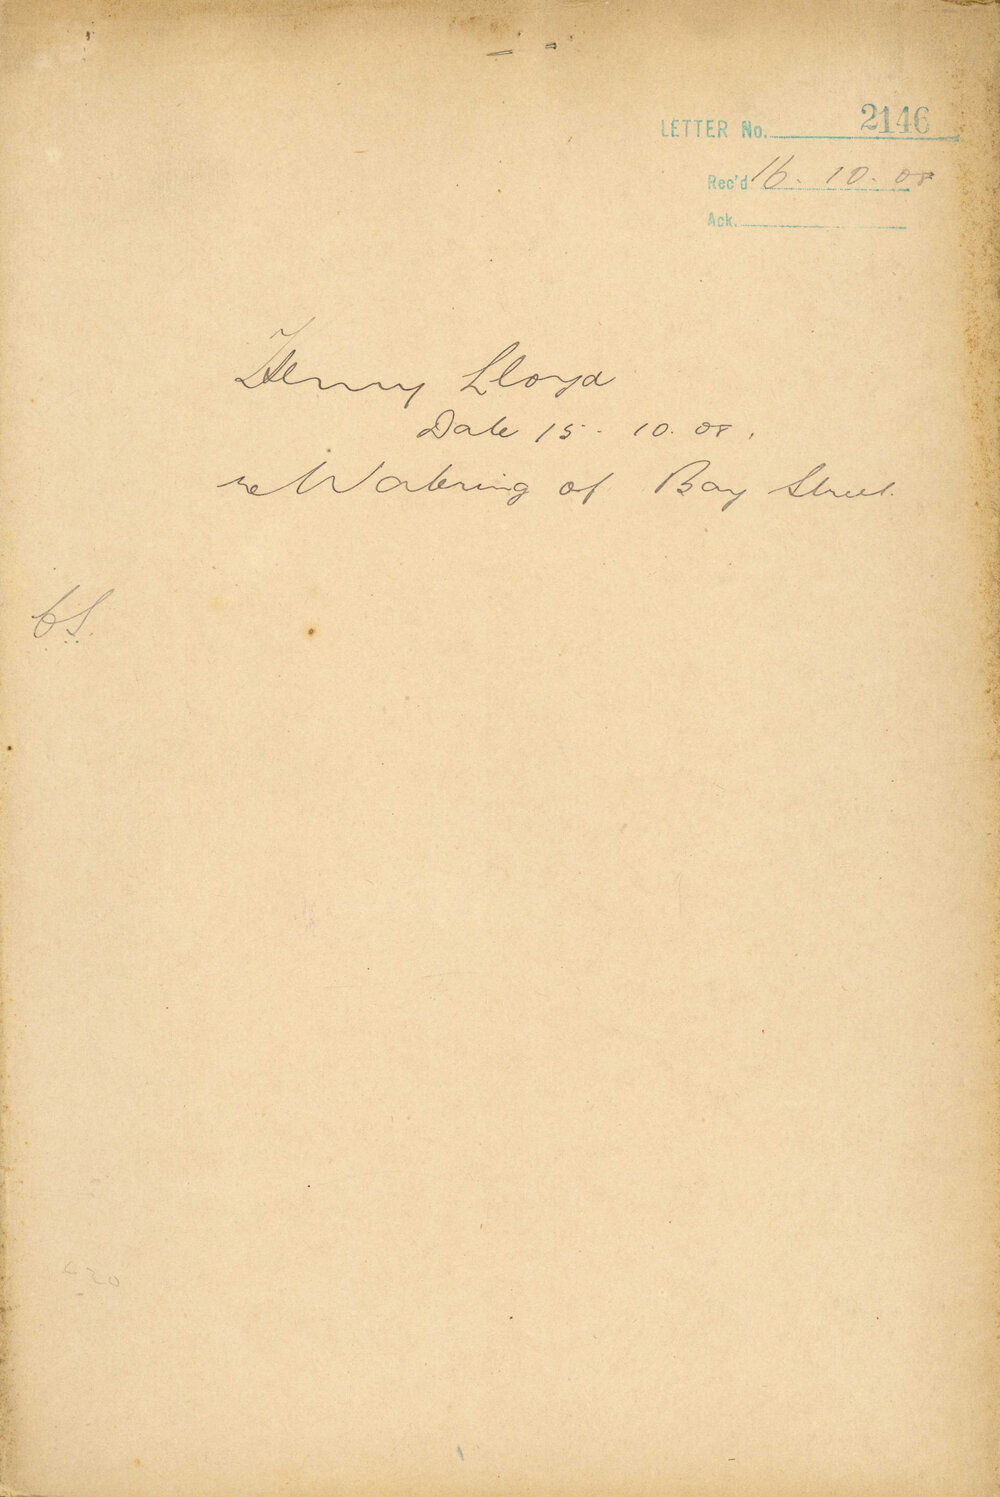 LETTER No. 2146
Rec'd 16. 10. 08
Ack.
Henry Lloyd
Date 15. 10. 08.
re Watering of Bay Street.